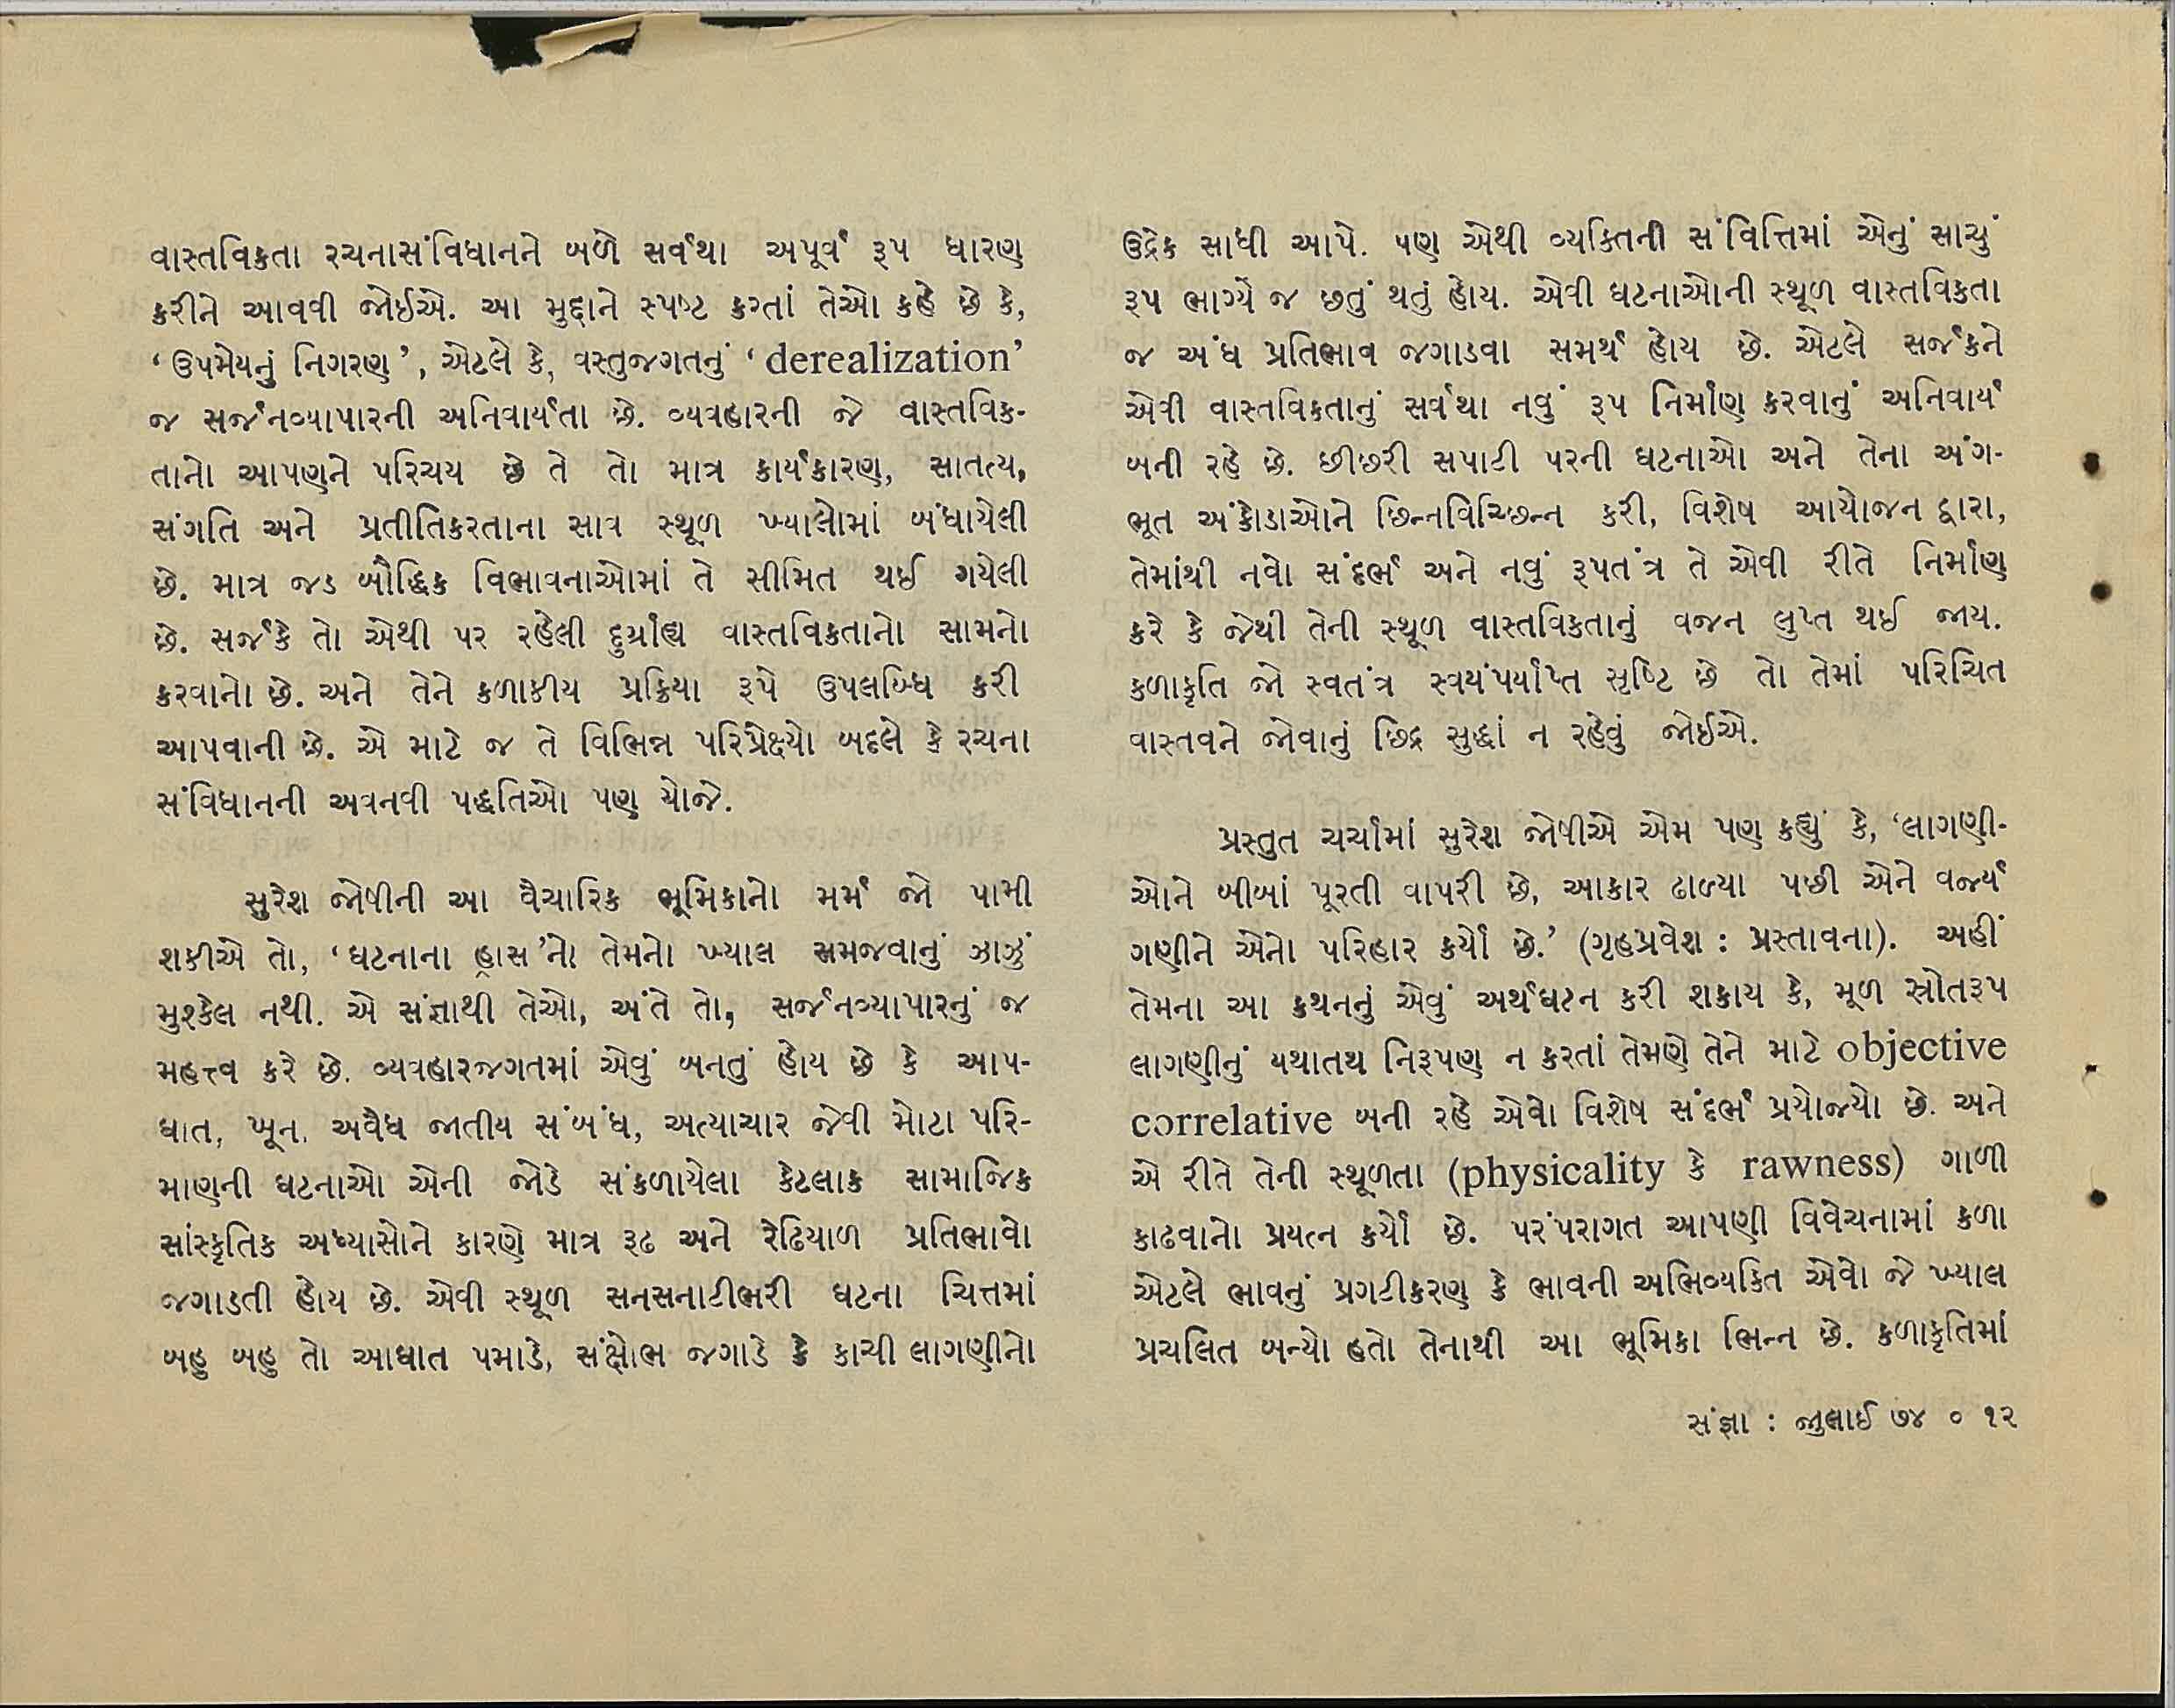 વાસ્તવિકતા રચનાસંવિધાનને બળે સર્વથા અપૂર્વ રૂપ ધારણ
કરીને આવવી જોઈએ. આ મુદ્દાને સ્પષ્ટ કરતાં તેઓ કહે છે કે,
‘ઉપમેયનું નિગરણ’, એટલે કે, વસ્તુજગતનું ‘derealization’
જ સર્જનવ્યાપારની અનિવાર્યતા છે. વ્યવહારની જે વાસ્તવિક-
તાનો આપણને પરિચય છે તે તો માત્ર કાર્યકારણ, સાતત્ય,
સંગતિ અને પ્રતીતિકરતાના માત્ર સ્થૂળ ખ્યાલોમાં બંધાયેલી
છે. માત્ર જડ બૌદ્ધિક વિભાવનાઓમાં તે સીમિત થઈ ગયેલી
છે. સર્જકે તો એથી પર રહેલી દુર્ગ્રાહ્ય વાસ્તવિકતાનો સામનો
કરવાનો છે. અને તેને કળાકીય પ્રક્રિયા રૂપે ઉપલબ્ધિ કરી
આપવાની છે. એ માટે જ તે વિભિન્ન પરિપ્રેક્ષ્યો બદલે કે રચના
સંવિધાનની અવનવી પદ્ધતિઓ પણ યોજે.
સુરેશ જોષીની આ વૈચારિક ભૂમિકાનો મર્મ જો પામી
શકીએ તો, ‘ઘટનાના હ્રાસ’નો તેમનો ખ્યાલ સમજવાનું ઝાઝું
મુશ્કેલ નથી. એ સંજ્ઞાથી તેઓ, અંતે તો, સર્જનવ્યાપારનું જ
મહત્ત્વ કરે છે. વ્યવહારજગતમાં એવું બનતું હોય છે કે આપ-
ઘાત, ખૂન, અવૈધ જાતીય સંબંધ, અત્યાચાર જેવી મોટા પરિ-
માણની ઘટનાઓ એની જોડે સંકળાયેલા કેટલાક સામાજિક
સાંસ્કૃતિક અધ્યાસોને કારણે માત્ર રૂઢ અને રેઢિયાળ પ્રતિભાવો
જગાડતી હોય છે. એવી સ્થૂળ સનસનાટીભરી ઘટના ચિત્તમાં
બહુ બહુ તો આઘાત પમાડે, સંક્ષોભ જગાડે કે કાચી લાગણીનો
ઉદ્રેક સાધી આપે. પણ એથી વ્યક્તિની સંવિત્તિમાં એનું સાચું
રૂપ ભાગ્યે જ છતું થતું હોય. એવી ઘટનાઓની સ્થૂળ વાસ્તવિકતા
જ અંધ પ્રતિભાવ જગાડવા સમર્થ હોય છે. એટલે સર્જકને
એવી વાસ્તવિકતાનું સર્વથા નવું રૂપ નિર્માણ કરવાનું અનિવાર્ય
બની રહે છે. છીછરી સપાટી પરની ઘટનાઓ અને તેના અંગ-
ભૂત અંકોડાઓને છિન્નવિચ્છિન્ન કરી, વિશેષ આયોજન દ્વારા,
તેમાંથી નવો સંદર્ભ અને નવું રૂપતંત્ર તે એવી રીતે નિર્માણ
કરે કે જેથી તેની સ્થૂળ વાસ્તવિકતાનું વજન લુપ્ત થઈ જાય.
કળાકૃતિ જો સ્વતંત્ર સ્વયંપર્યાપ્ત સૃષ્ટિ છે તો તેમાં પરિચિત
વાસ્તવને જોવાનું છિદ્ર સુદ્ધાં ન રહેવું જોઈએ.
પ્રસ્તુત ચર્ચામાં સુરેશ જોષીએ એમ પણ કહ્યું કે, ‘લાગણી-
ઓને બીબાં પૂરતી વાપરી છે, આકાર ઢાળ્યા પછી એને વર્જ્ય
ગણીને એનો પરિહાર કર્યો છે.’ (ગૃહપ્રવેશ : પ્રસ્તાવના). અહીં
તેમના આ કથનનું એવું અર્થઘટન કરી શકાય કે, મૂળ સ્રોતરૂપ
લાગણીનું યથાતથ નિરૂપણ ન કરતાં તેમણે તેને માટે objective
correlative બની રહે એવો વિશેષ સંદર્ભ પ્રયોજ્યો છે. અને
એ રીતે તેની સ્થૂળતા (physicality કે rawness) ગાળી
કાઢવાનો પ્રયત્ન કર્યો છે. પરંપરાગત આપણી વિવેચનામાં કળા
એટલે ભાવનું પ્રગટીકરણ કે ભાવની અભિવ્યક્તિ એવો જે ખ્યાલ
પ્રચલિત બન્યો હતો તેનાથી આ ભૂમિકા ભિન્ન છે. કળાકૃતિમાં
સંજ્ઞા : જુલાઈ ૭૪ ૦ ૧૨